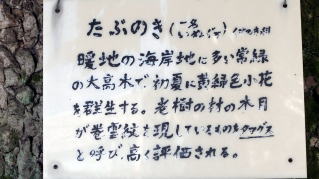 たぶのき(一名いぬぐす)くすのき科
暖地の海岸地に多い常緑
の大高木で、初夏に黄緑色小花
を群生する。老樹の材の木目
が巻雲紋を現しているものをタマグス
と呼び、高く評価される。